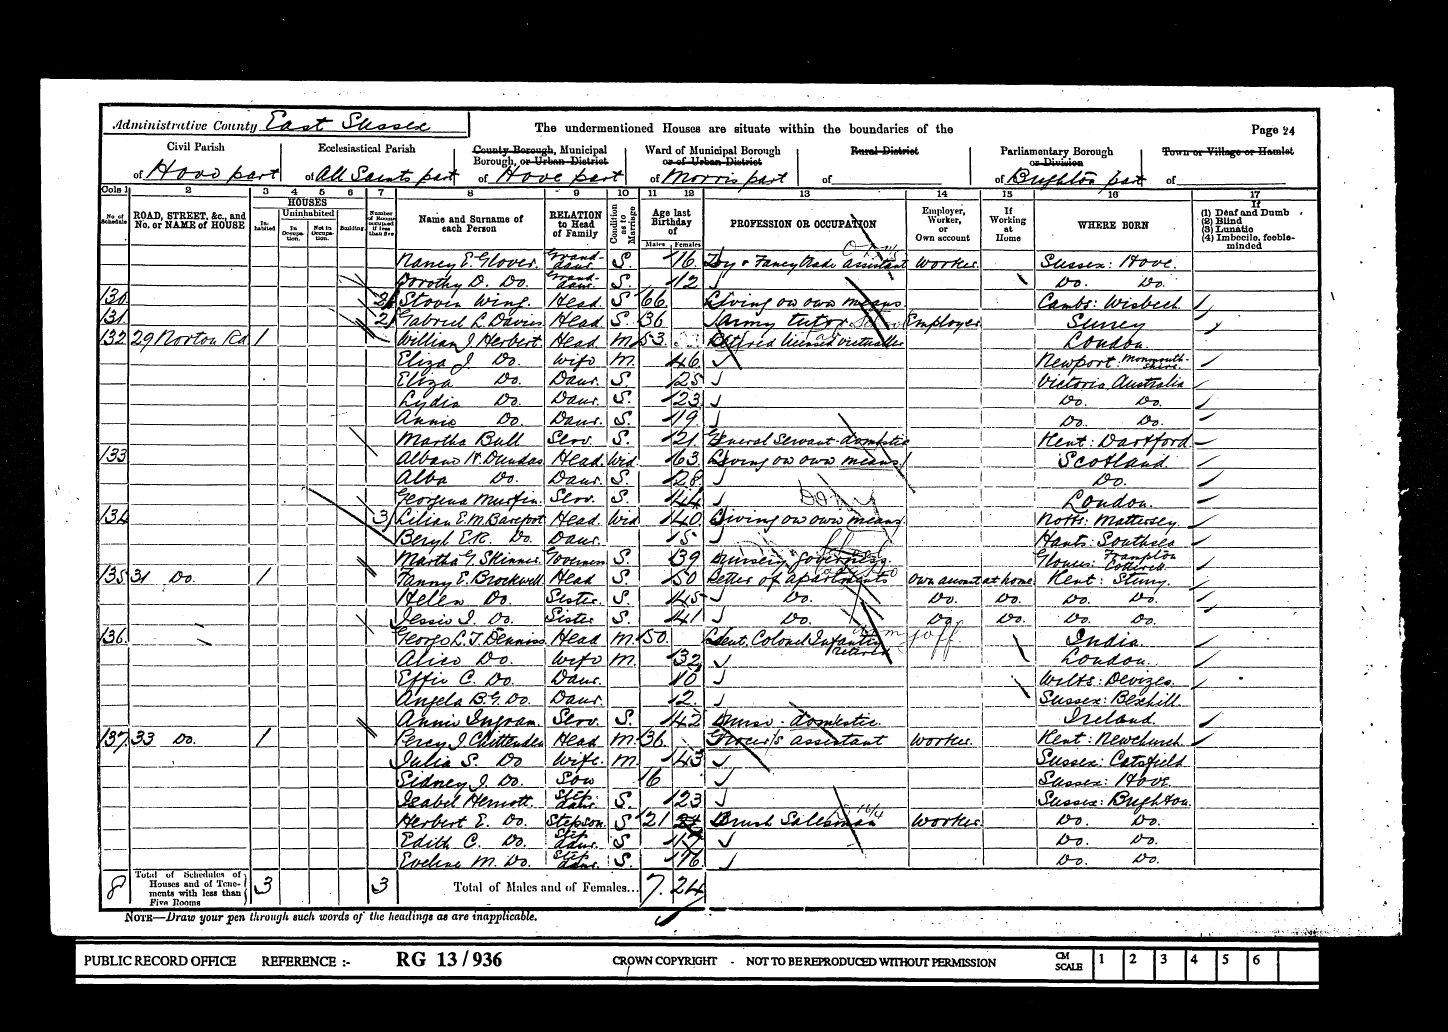 Administrative County East Sussex
The undermentioned Houses are situate within the boundaries of the
Page 24
Civil Parish
of Hove part
Ecclesiastical Parish
of All Saints part
County Borough, Municipal Borough, or Urban District
of Hove part
Ward of Municipal Borough or of Urban District
of Morris part
Rural District
of
Parliamentary Borough or Division
of Brighton part
Town or Village or Hamlet
of
Cols 1 2 3 4 5 6 7 8 9 10 11 12 13 14 15 16 17
No. of Schedule
ROAD, STREET, &c., and No. or NAME of HOUSE
HOUSES
Inhabited
Uninhabited
In Occupation.
Not in Occupation.
Building.
Number of Rooms occupied if less than five
Name and Surname of each Person
RELATION to Head of Family
Condition as to Marriage
Age last Birthday of
Males
Females
PROFESSION OR OCCUPATION
Employer, Worker, or Own account
If Working at Home
WHERE BORN
If
(1) Deaf and Dumb
(2) Blind
(3) Lunatic
(4) Imbecile, feeble-minded
Nancy E. Glover. Grand-daur. S. 16 Toy & Fancy trade assistant Worker Sussex: Hove.
Dorothy D. Do. Grand-daur. S. 12 Do. Do.
130 2 Wing. Head S 66 Living on own means Cambs: Wisbech
131 2 Gabriel L. Davies Head. S. 36 Army tutor Employer Surrey
132 29 Norton Rd 1 William J. Herbert. Head M 53 Retired licensed victualler London.
Eliza J. Do. Wife M. 46 Newport Monmouthshire.
Eliza Do. Daur. S. 25 Victoria Australia
Lydia Do. Daur. S. 23 Do. Do.
Annie Do. Daur. S. 19 Do. Do.
Martha Bull Serv. S. 21 General Servant-domestic Kent: Dartford
133 H. Dundas Head. Wid. 63 Living on own means Scotland
Alba Do. Daur. S. 28 Do.
Georgina Serv. S. 44 London.
134 3 Lilian E.M. Barefoot Head. Wid 40 Living on own means Notts: Mattersey
Beryl E.R. Do. Daur. 5 Hants: Southsea
Martha G. Skinner Governess S. 39 Nursery Governess Glouces: Frampton Cotterell
135 31 Do. 1 Fanny E. Brockwell Head S. 50 Letter of apartments Own account at home Kent: Sturry.
Helen Do. Sister. S. 45 Do. Do. Do. Do. Do.
Jessie J. Do. Sister S. 41 Do. Do. Do. Do. Do.
136 George L.T. Denniss Head M. 50 Lieut. Colonel Infantry retired India.
Alice Do. Wife M. 32 London.
Effie C. Do. Daur. 10 Wilts: Devizes.
Angela B.G. Do. Daur. 2 Sussex: Bexhill
Annie Ingram. Serv. S. 42 Nurse - domestic Ireland.
137 33 Do. 1 Percy J. Chittenden Head M. 36 Grocer's assistant Worker. Kent: Newchurch
Julia S. Do Wife. M. 43 Sussex: Catsfield
Sidney J. Do. Son 6 Sussex: Hove.
Isabel Step daur. S. 23 Sussex: Brighton.
Herbert E. Do. Stepson S 21 Brush Salesman Worker Do. Do.
Edith C. Do. Step daur. S 17 Do. Do.
Eveline M. Do. Step daur. S. 16 Do. Do.
8 Total of Schedules of Houses and of Tenements with less than Five Rooms 3 3 Total of Males and of Females... 7 24
NOTE—Draw your pen through such words of the headings as are inapplicable.
PUBLIC RECORD OFFICE REFERENCE :- RG 13 / 936 CROWN COPYRIGHT - NOT TO BE REPRODUCED WITHOUT PERMISSION
CM SCALE 1 2 3 4 5 6